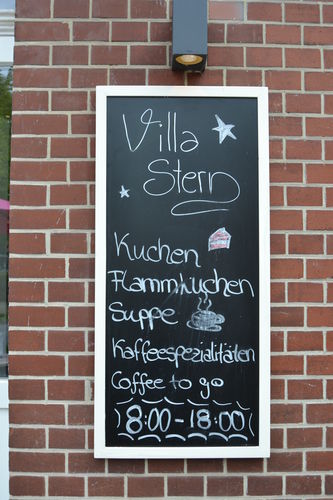 Villa
Stern
Kuchen
Flammkuchen
Suppe
Kaffeespezialitäten
Coffee to go
8:00 - 18:00